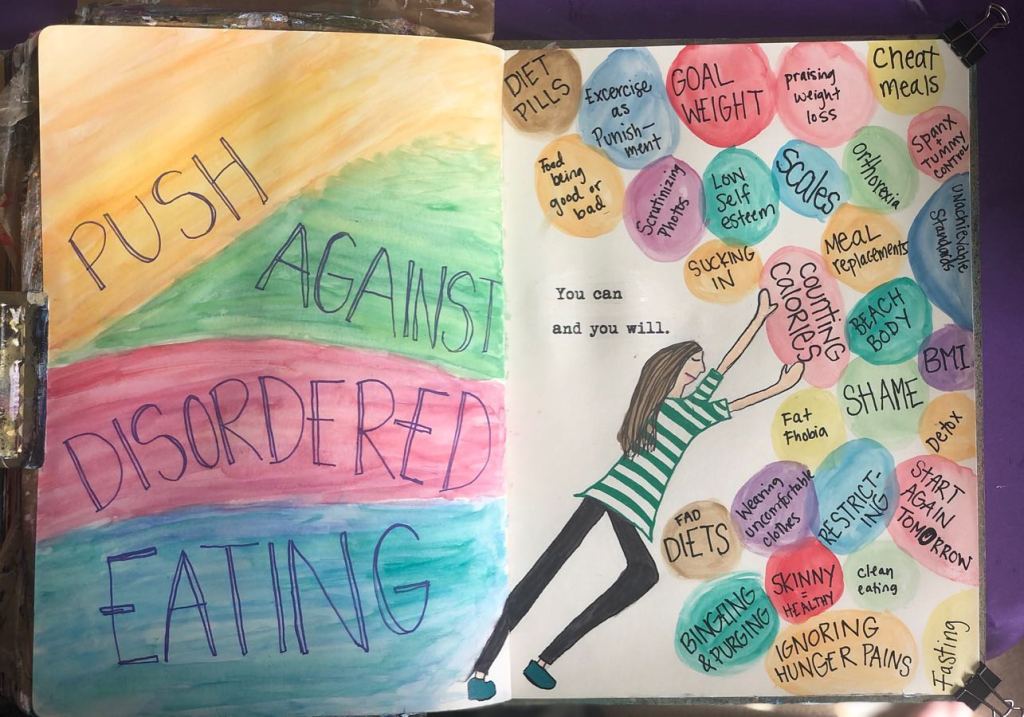 PUSH
AGAINST
DISORDERED
EATING
DIET
PILLS
Excercise
as
Punish-
ment
GOAL
WEIGHT
praising
weight
loss
Cheat
meals
Food
being
good or
bad
Scrutinizing
Photos
Low
Self
esteem
Scales
Orthorexia
Spanx
+
Tummy
Control
Sucking
in
Meal
replacements
unachievable
Standards
You can
and you will.
Counting
Calories
BEACH
BODY
BMI
SHAME
Fat
Fhobia
Detox
Wearing
uncomfortable
clothes
RESTRICT-
ING
START
AGAIN
TOMORROW
FAD
DIETS
SKINNY
=
HEALTHY
clean
eating
BINGEING
& PURGING
IGNORING
HUNGER PAINS
Fasting